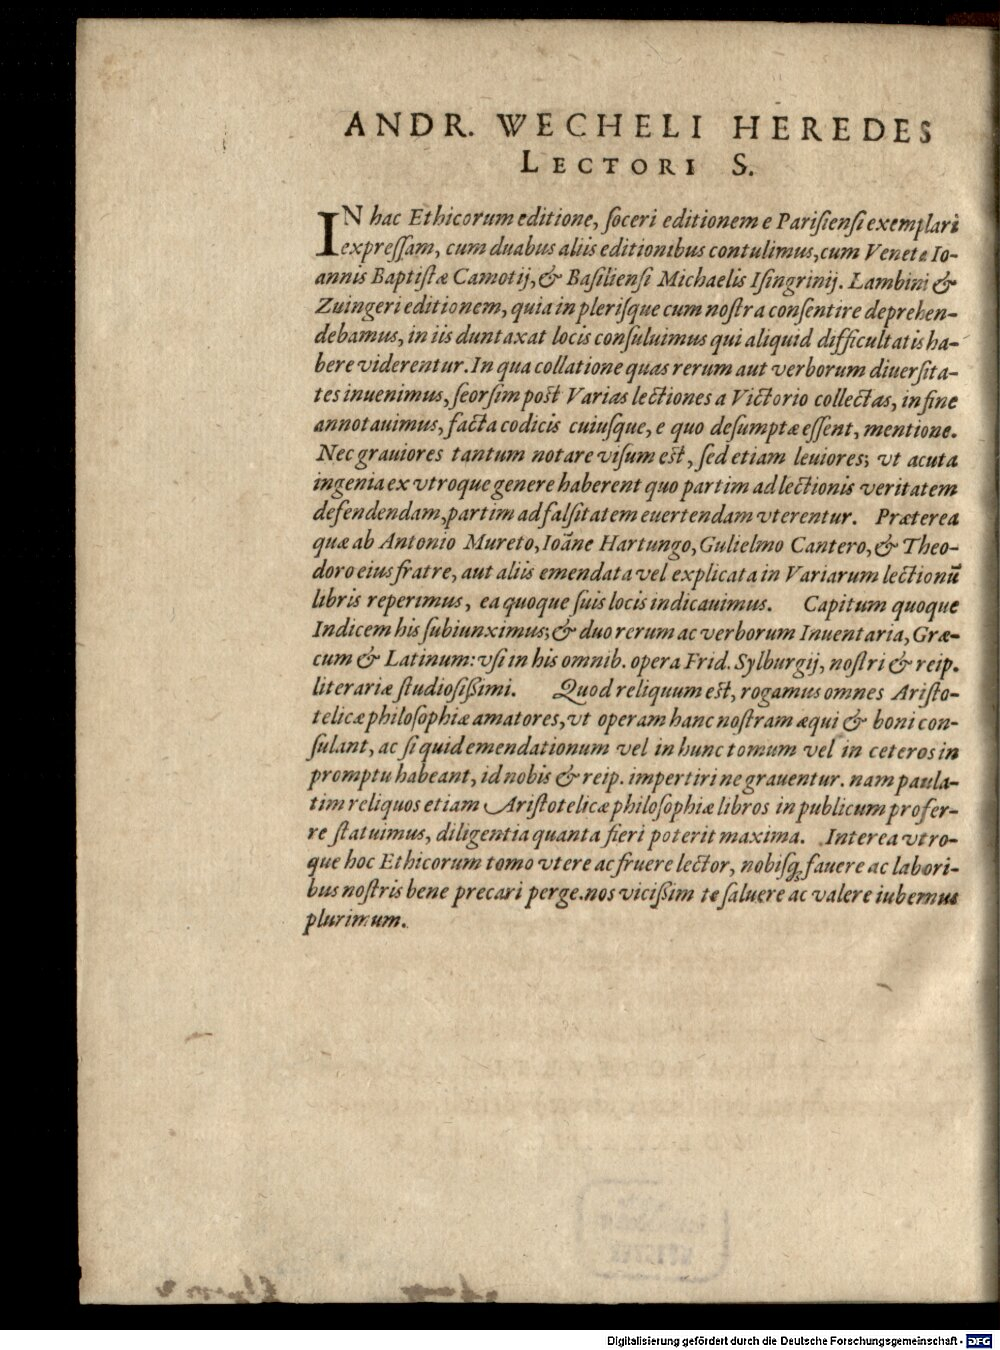 ANDR. WECHELI HEREDES
LECTORI S.
IN hac Ethicorum editione, ſoceri editionem e Pariſienſi exemplari
expreſſam, cum duabus aliis editionibus contulimus, cum Veneta Io-
annis Baptiſtæ Camotij, & Baſilienſi Michaelis Iſingrinij. Lambini &
Zuingeri editionem, quia in pleriſque cum noſtra conſentire deprehen-
debamus, in iis duntaxat locis conſuluimus qui aliquid difficultatis ha-
bere viderentur. In qua collatione quas rerum aut verborum diuerſita-
tes inuenimus, ſeorſim poſt Varias lectiones a Victorio collectas, in fine
annotauimus, facta codicis cuiuſque, e quo deſumptæ eſſent, mentione.
Nec grauiores tantum notare viſum eſt, ſed etiam leuiores; vt acuta
ingenia ex vtroque genere haberent quo partim ad lectionis veritatem
defendendam, partim ad falſitatem euertendam vterentur. Præterea
quæ ab Antonio Mureto, Ioāne Hartungo, Gulielmo Cantero, & Theo-
doro eius fratre, aut aliis emendata vel explicata in Variarum lectionū
libris reperimus, ea quoque ſuis locis indicauimus. Capitum quoque
Indicem his ſubiunximus; & duo rerum ac verborum Inuentaria, Græ-
cum & Latinum: vſi in his omnib. opera Frid. Sylburgij, noſtri & reip.
literariæ ſtudioſißimi. Quod reliquum eſt, rogamus omnes Ariſto-
telicæ philoſophiæ amatores, vt operam hanc noſtram æqui & boni con-
ſulant, ac ſi quid emendationum vel in hunc tomum vel in ceteros in
promptu habeant, id nobis & reip. impertiri ne grauentur. nam paula-
tim reliquos etiam Ariſtotelicæ philoſophiæ libros in publicum profer-
re ſtatuimus, diligentia quanta fieri poterit maxima. Interea vtro-
que hoc Ethicorum tomo vtere ac fruere lector, nobiſq; fauere ac labori-
bus noſtris bene precari perge. nos vicißim te ſaluere ac valere iubemus
plurimum.
Digitalisierung gefördert durch die Deutsche Forschungsgemeinschaft - DFG